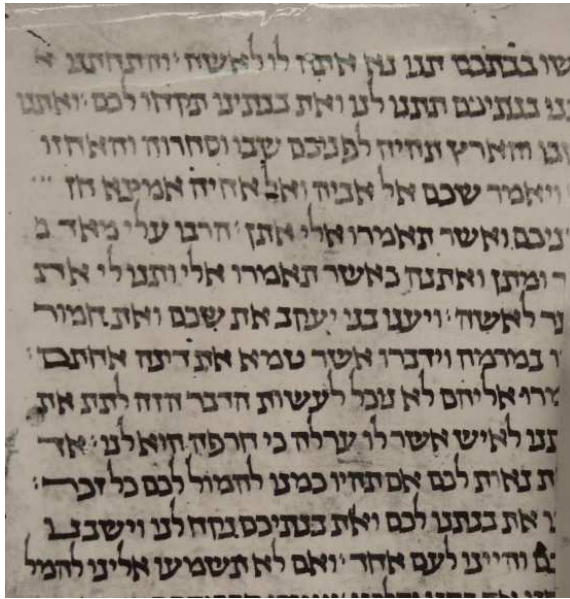 שו בבתכם תנו נא אתה לו לאשה והתחתנו א
בנתיכם תתנו לנו ואת בנתינו תקחו לכם ואתנו
שבו והארץ תהיה לפניכם שבו וסחרוה והאחזו
ויאמר שכם אל אביה ואל אחיה אמצא חן
יניכם ואשר תאמרו אלי אתן הרבו עלי מאד מ
ר ומתן ואתנה כאשר תאמרו אלי ותנו לי את
ער לאשה ויענו בני יעקב את שכם ואת חמור
ו במרמה וידברו אשר טמא את דינה אחתם
מרו אליהם לא נוכל לעשות הדבר הזה לתת את
תנו לאיש אשר לו ערלה כי חרפה הוא לנו אך
ת נאות לכם אם תהיו כמנו להמול לכם כל זכר
ו את בנתנו לכם ואת בנתיכם נקח לנו וישבנו
ם והיינו לעם אחד ואם לא תשמעו אלינו להמול